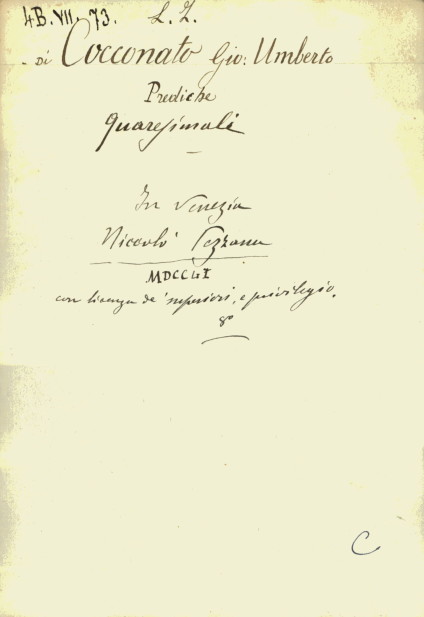 4B. VII. 73. L. Z.
Di Cocconato Gio: Umberto
Prediche
Quaresimali
In Venezia
Niccolò Pezzana
MDCCLI
con licenza de' superiori, e privilegio.
8°
C